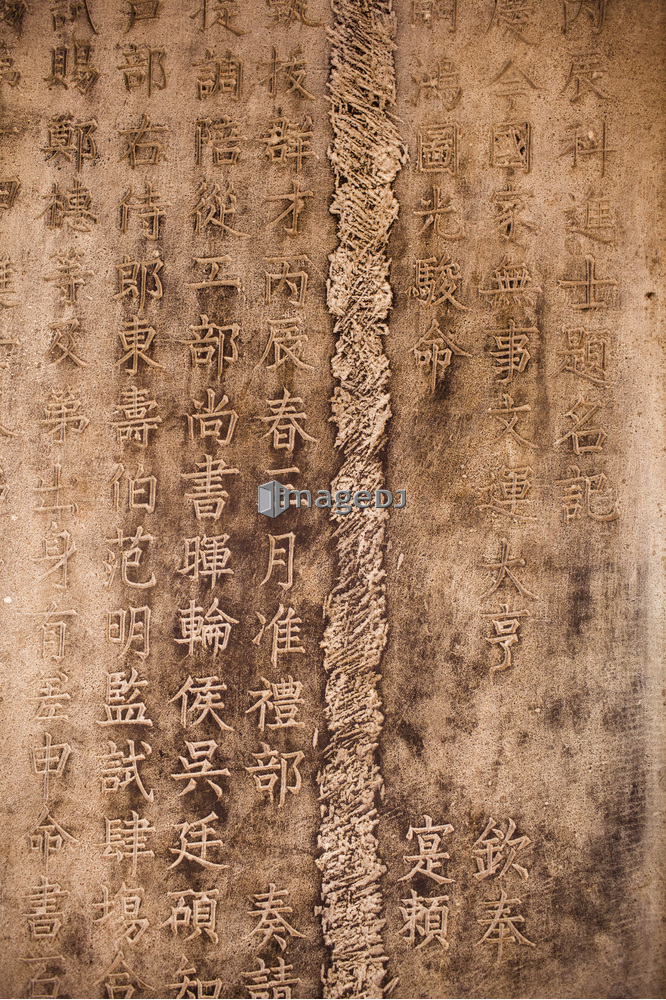 丙辰科進士題名記
慶今國家無事文運大亨 欽奉
嗣鴻圖光駿命 寔頼
甄抜群才丙辰春三月准禮部 奏請
從調陪從工部尚書暉輪侯呉廷碩知
戸部右侍郎東壽伯范明監試肆場合
試賜鄭樓等及第出身有差申命書石
ImageDJ